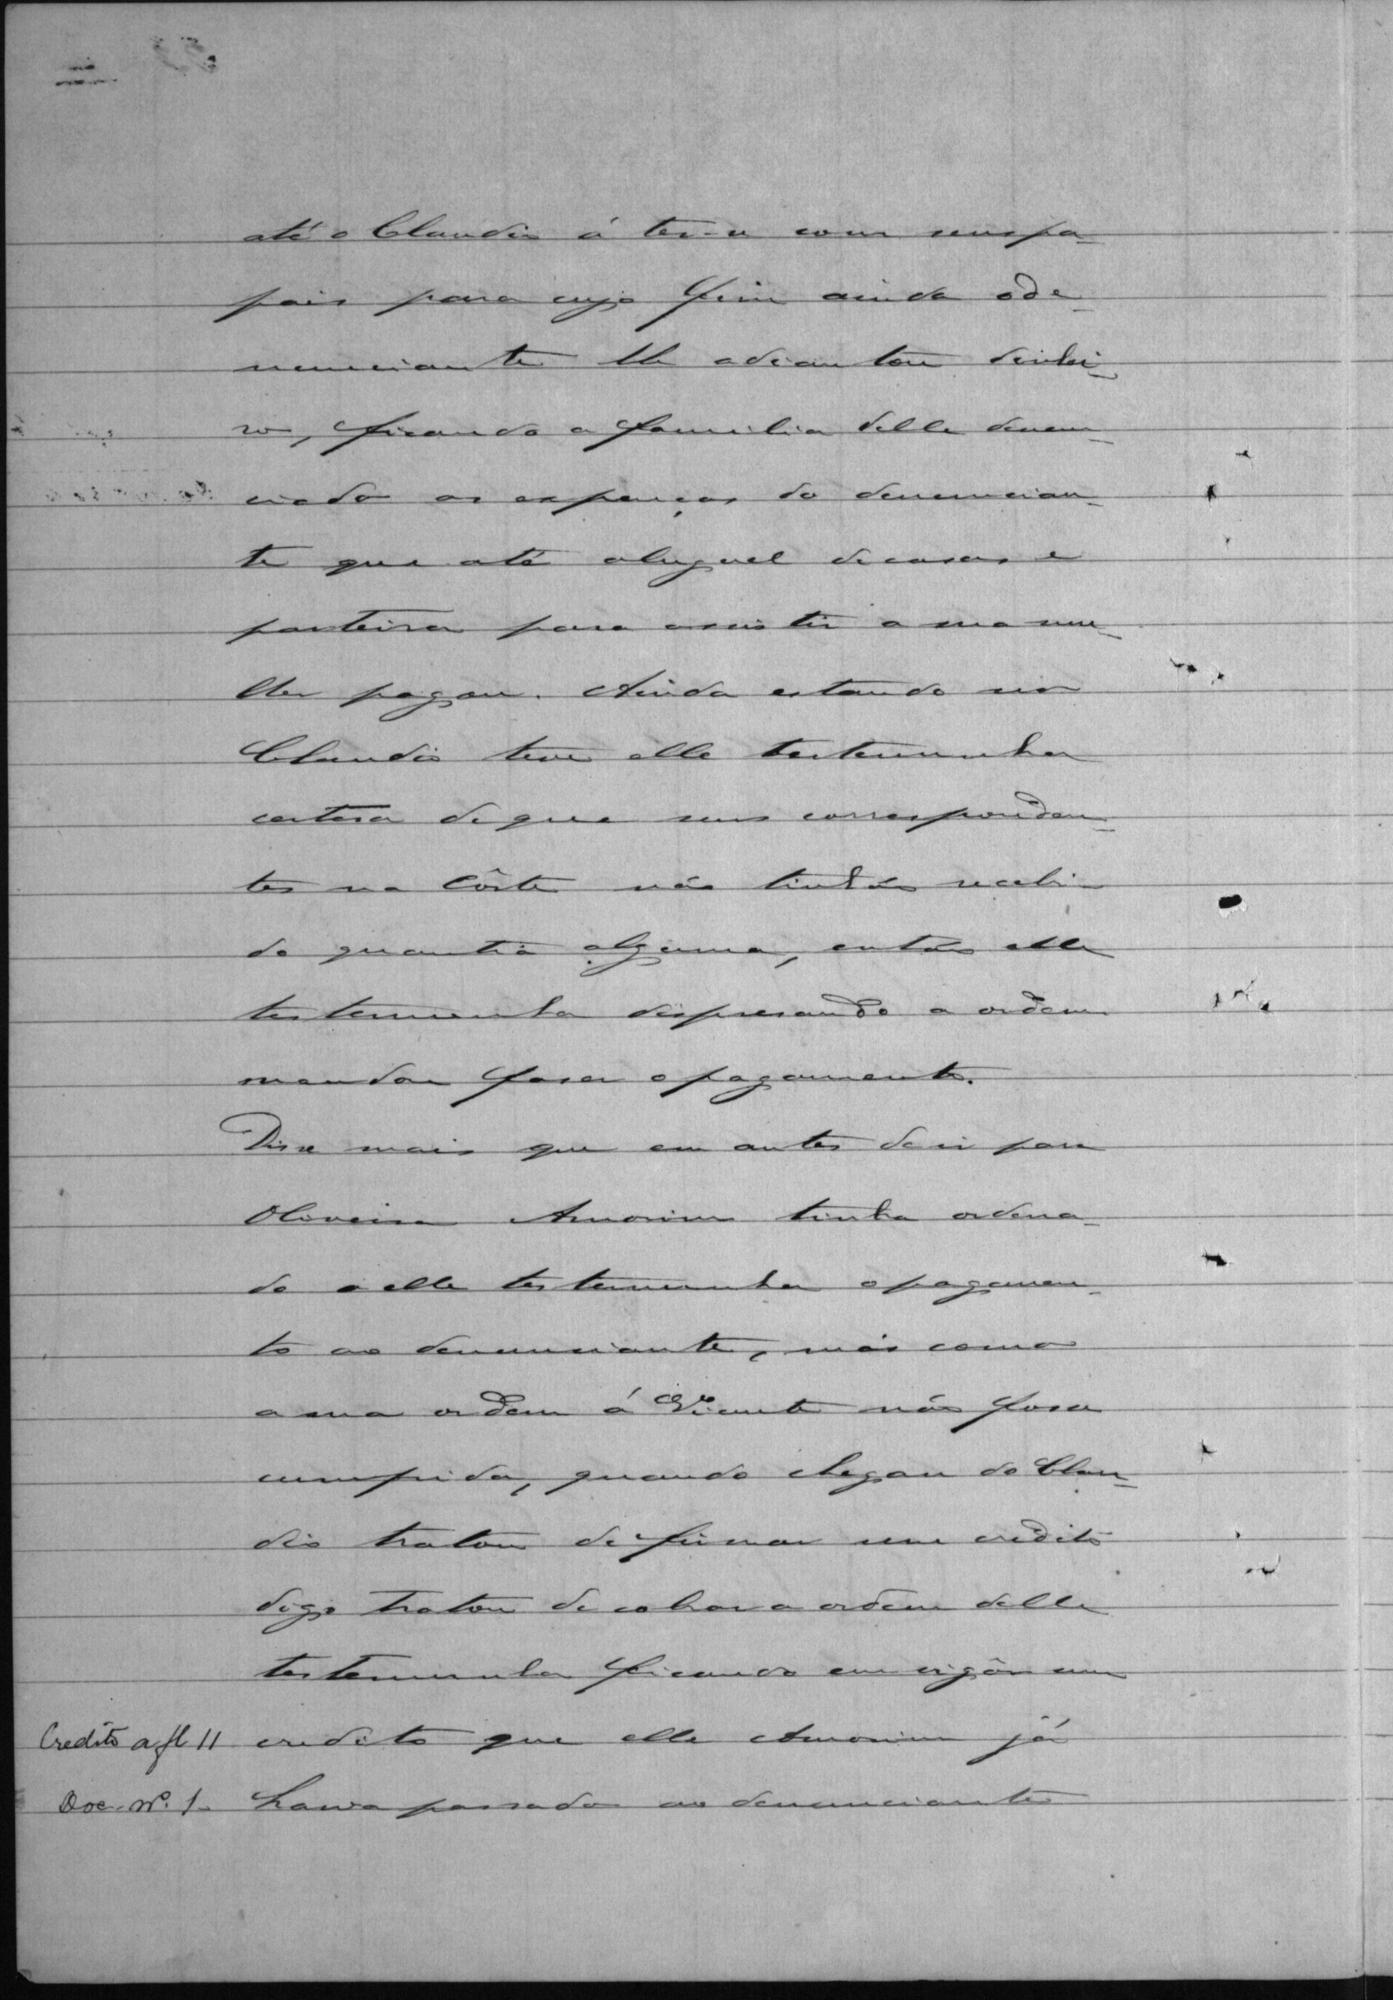 até o Claudio á ter-u com seus pa-
pais para cujo fim ainda o de-
nunciante lhe adeantou dinhei-
ro, ficando a familia delle denun-
ciado as expenças do denuncian-
te que até aluguel de casas e
parteira para assistir a sua mu-
lher pagou. Ainda estando no
Claudio teve elle testemunha
certesa de que seus corresponden-
tes na Côrte não tinhão recebi-
do quantia alguma, então elle
testemunha despresando a ordem
mandou faser o pagamento.
Disse mais que em antes de ir para
Oliveira Amorim tinha ordena-
do a elle testemunha o pagamen-
to ao denunciante, más como
a sua ordem á Vicente não fosse
cumprida, quando chegou do Clau-
dio tratou de firmar um credito
digo tratou de cobrar a ordem delle
testemunha ficando em vigôr um
Credito a fl 11 credito que elle Amorim já
Doc. Nº. 1. havia passado ao denunciante